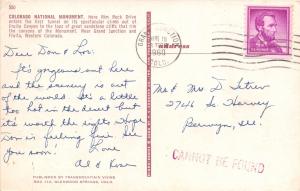 550
COLORADO NATIONAL MONUMENT. Here Rim Rock Drive
enters the East tunnel on its spectacular climb out of
Fruita Canyon to the tops of great sandstone cliffs that
rim the canyons of the Monument. Near Grand Junction and
Fruita, Western Colorado.
Dear Don & Lois.
It's gorgeous out here
and the scenery is out
of the world. It's a little
too hot in the desert but
it's worth the sights. Hope
Don is feeling fine. See
you soon! Love
Al & Rose
PUBLISHED BY TRANSMOUNTAIN VIEWS
BOX 110, GLENWOOD SPRINGS, COLO.
address
1960
COLO.
Mr & Mrs D
2746 So Harvey
Berwyn, Ill.
CANNOT BE FOUND